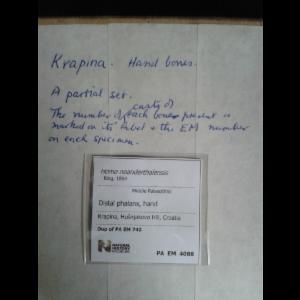 Krapina. Hand bones.
A partial set.
casts of
The number of each bones present is
marked on its label & the EM number
on each specimen.
Homo neanderthalensis
King, 1864
Middle Palaeolithic
Distal phalanx, hand
Krapina, Hušnjakovo Hill, Croatia
Dup of PA EM 742
NATURAL
HISTORY
MUSEUM
PA EM 4088